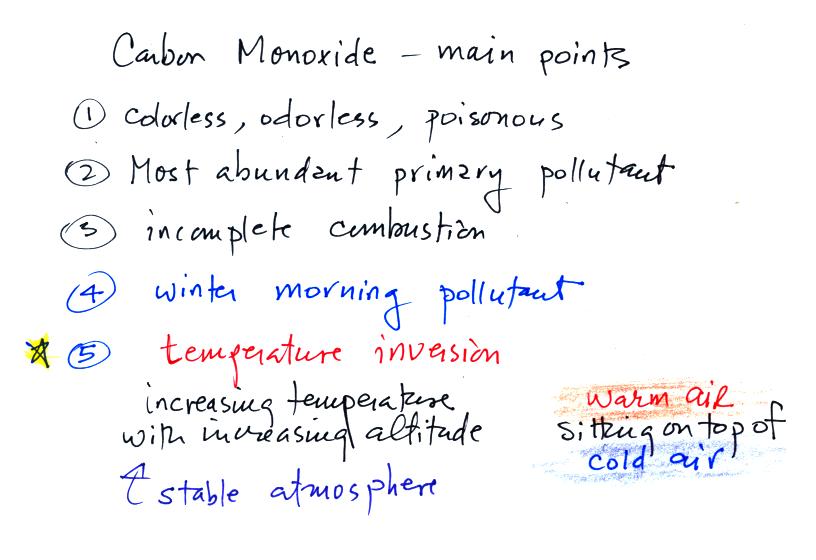 Carbon Monoxide - main points
① colorless, odorless, poisonous
② Most abundant primary pollutant
③ incomplete combustion
④ winter morning pollutant
⑤ temperature inversion
increasing temperature
with increasing altitude
↑ stable atmosphere
warm air
sitting on top of
cold air